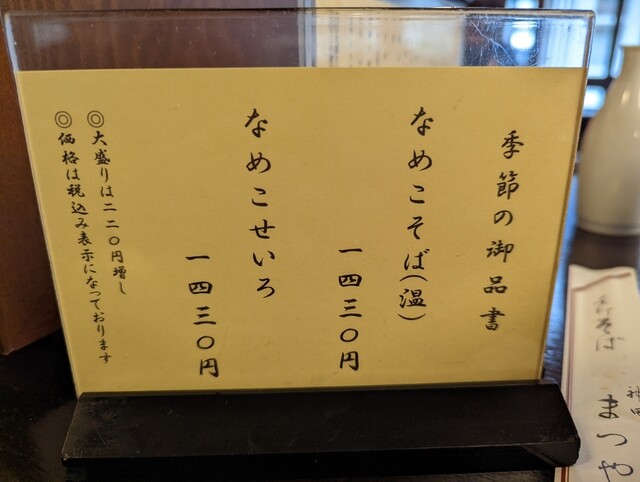 季節の御品書
なめこそば(温)
一四三〇円
なめこせいろ
一四三〇円
◎大盛りは二二〇円増し
◎価格は税込み表示になっております
そば
神田
まつや